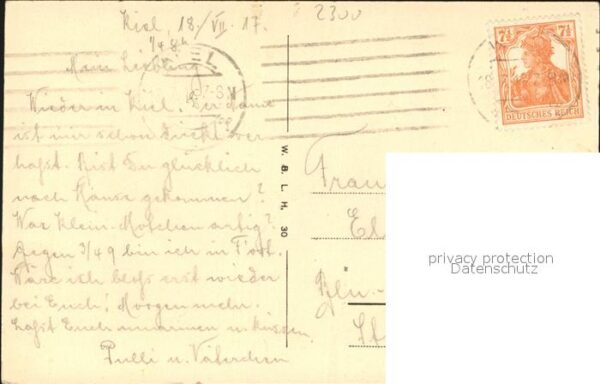 Kiel, 18./VII. 17.
2300
7½ 7½
DEUTSCHES REICH
Mein Liebling
Wieder in Kiel. Der Name
ist mir schon direkt ver
haßt. Bist Du glücklich
nach Hause gekommen?
War Klein-Molchen artig?
Gegen 3/4 9 bin ich in Fort.
Wäre ich bloß erst wieder
bei Euch! Morgen mehr.
Laßt Euch umarmen u. küssen
Pulli u. Väterchen
W. B. L. H. 30
Frau
El
Bln.-
St
privacy protection
Datenschutz